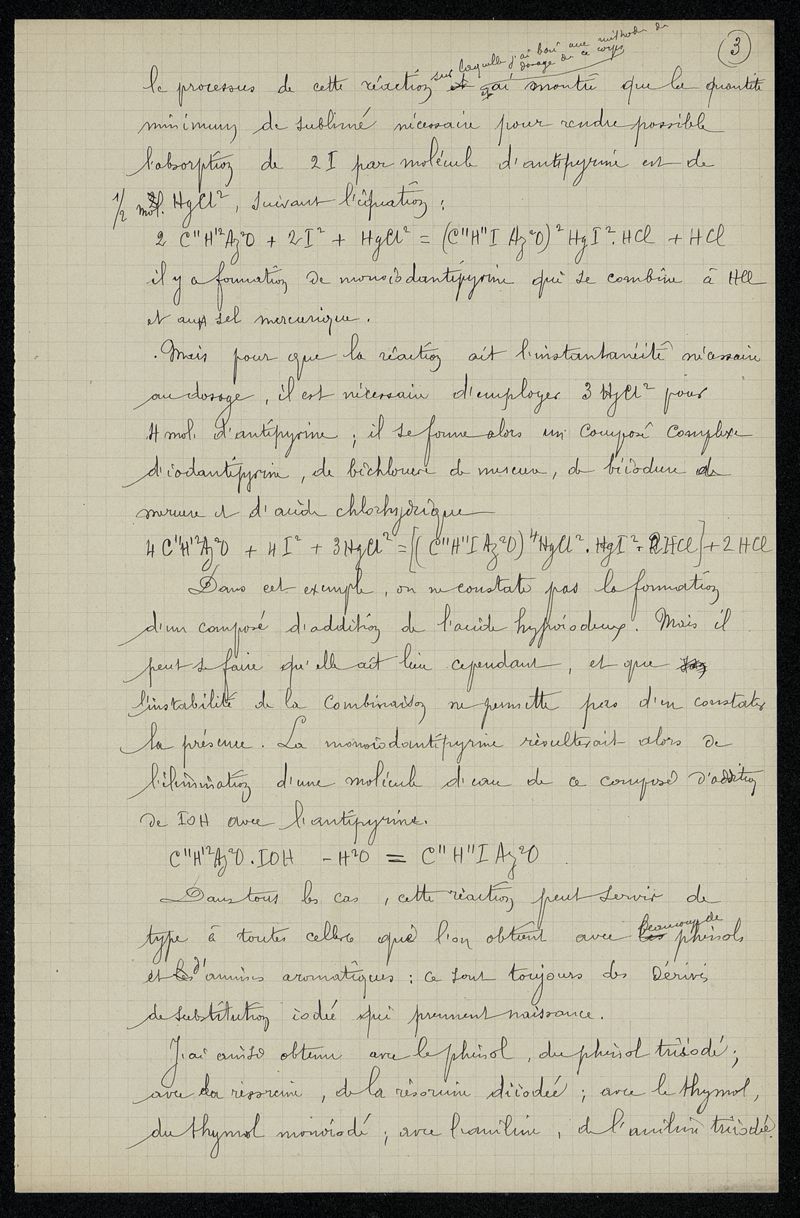 3
sur laquelle j'ai basé une méthode de
dosage de ce corps
le processus de cette réaction et j'ai montré que la quantité
minimum de sublimé nécessaire pour rendre possible
l'absorption de 2 I par molécule d'antipyrine est de
1/2 mol. HgCl², suivant l'équation :
2 C¹¹H¹²Az²O + 2 I² + HgCl² = (C¹¹H¹¹I Az²O)² HgI². HCl + HCl
il y a formation de monoiodantipyrine qui se combine à HCl
et au sel mercurique.
Mais pour que la réaction ait l'instantanéité nécessaire
au dosage, il est nécessaire d'employer 3 HgCl² pour
4 mol. d'antipyrine ; il se forme alors un composé complexe
d'iodantipyrine, de bichlorure de mercure, de biiodure de
mercure et d'acide chlorhydrique
4 C¹¹H¹²Az²O + 4 I² + 3 HgCl² = [(C¹¹H¹¹I Az²O)⁴ HgCl². HgI². 2 HCl] + 2 HCl
Dans cet exemple, on ne constate pas la formation
d'un composé d'addition de l'acide hypoiodeux. Mais il
peut se faire qu'elle ait lieu cependant, et que
l'instabilité de la combinaison ne permette pas d'en constater
la présence. La monoiodantipyrine résulterait alors de
l'élimination d'une molécule d'eau de ce composé d'addition
de IOH avec l'antipyrine.
C¹¹H¹²Az²O. IOH - H²O = C¹¹H¹¹I Az²O
Dans tous les cas, cette réaction peut servir de
type à toutes celles que l'on obtient avec beaucoup de phénols
et d'amines aromatiques : ce sont toujours des dérivés
de substitution iodée qui prennent naissance.
J'ai ainsi obtenu avec le phénol, du phénol triiodé ;
avec la résorcine, de la résorcine diiodée ; avec le thymol,
du thymol monoiodé ; avec l'aniline, de l'aniline triiodée.